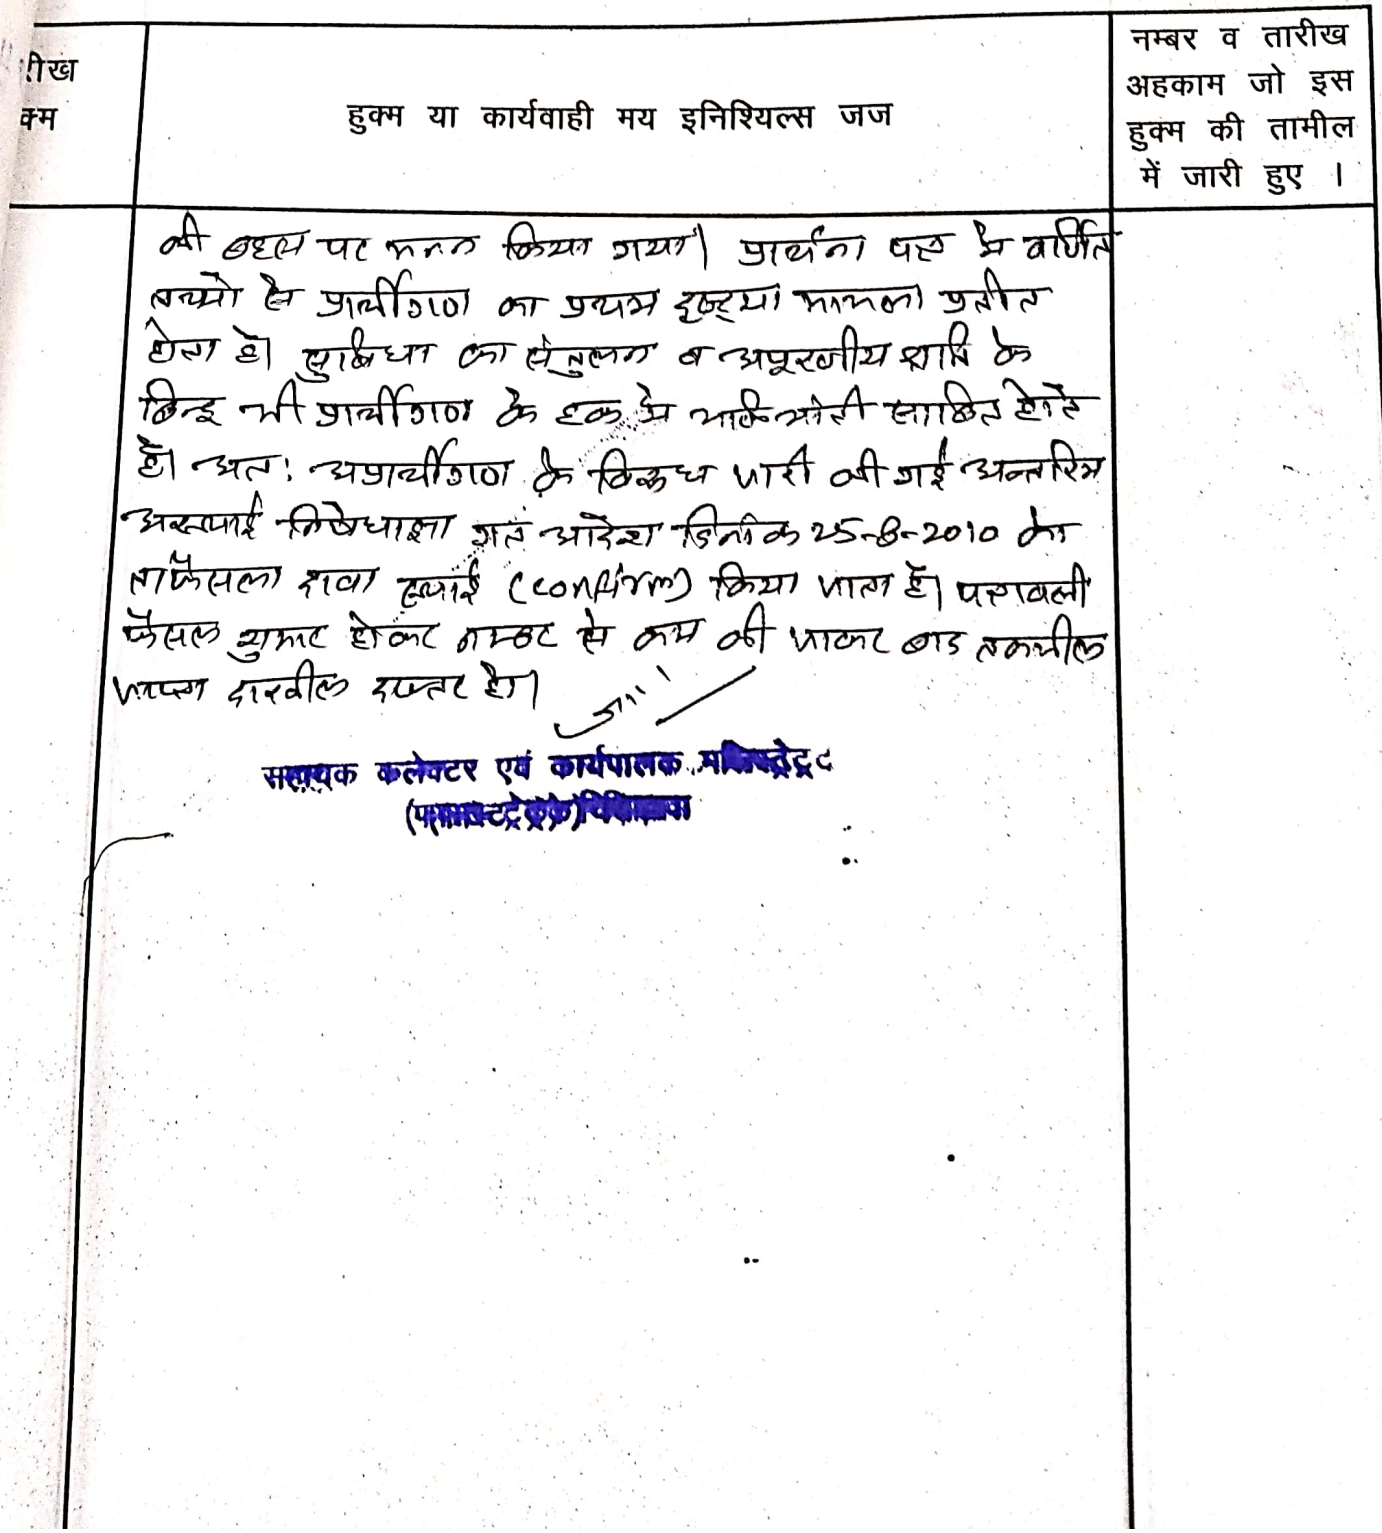 रीख
क्म
हुक्म या कार्यवाही मय इनिश्यिल्स जज
नम्बर व तारीख
अहकाम जो इस
हुक्म की तामील
में जारी हुए ।
की बहस पर मनन किया गया। प्रार्थना पत्र मे वर्णित
तथ्यो से प्रार्थीगण का प्रथम दृष्ट्या मामला प्रतीत
होता है। सुविधा का संतुलन व अपूरणीय क्षति के
बिन्दु भी प्रार्थीगण के हक मे साबित होते
है। अतः अप्रार्थीगण के विरूध जारी की गई अन्तरिम
अस्थाई निषेधाज्ञा गत आदेश दिनांक 25-8-2010 को
ताफैसला दावा स्थाई (confirm) किया जाता है। पत्रावली
फैसल शुमार होकर नम्बर से कम की जाकर बाद तकमील
जाप्ता दाखील दफ्तर हो।
सहायक कलेक्टर एवं कार्यपालक मजिस्ट्रेट